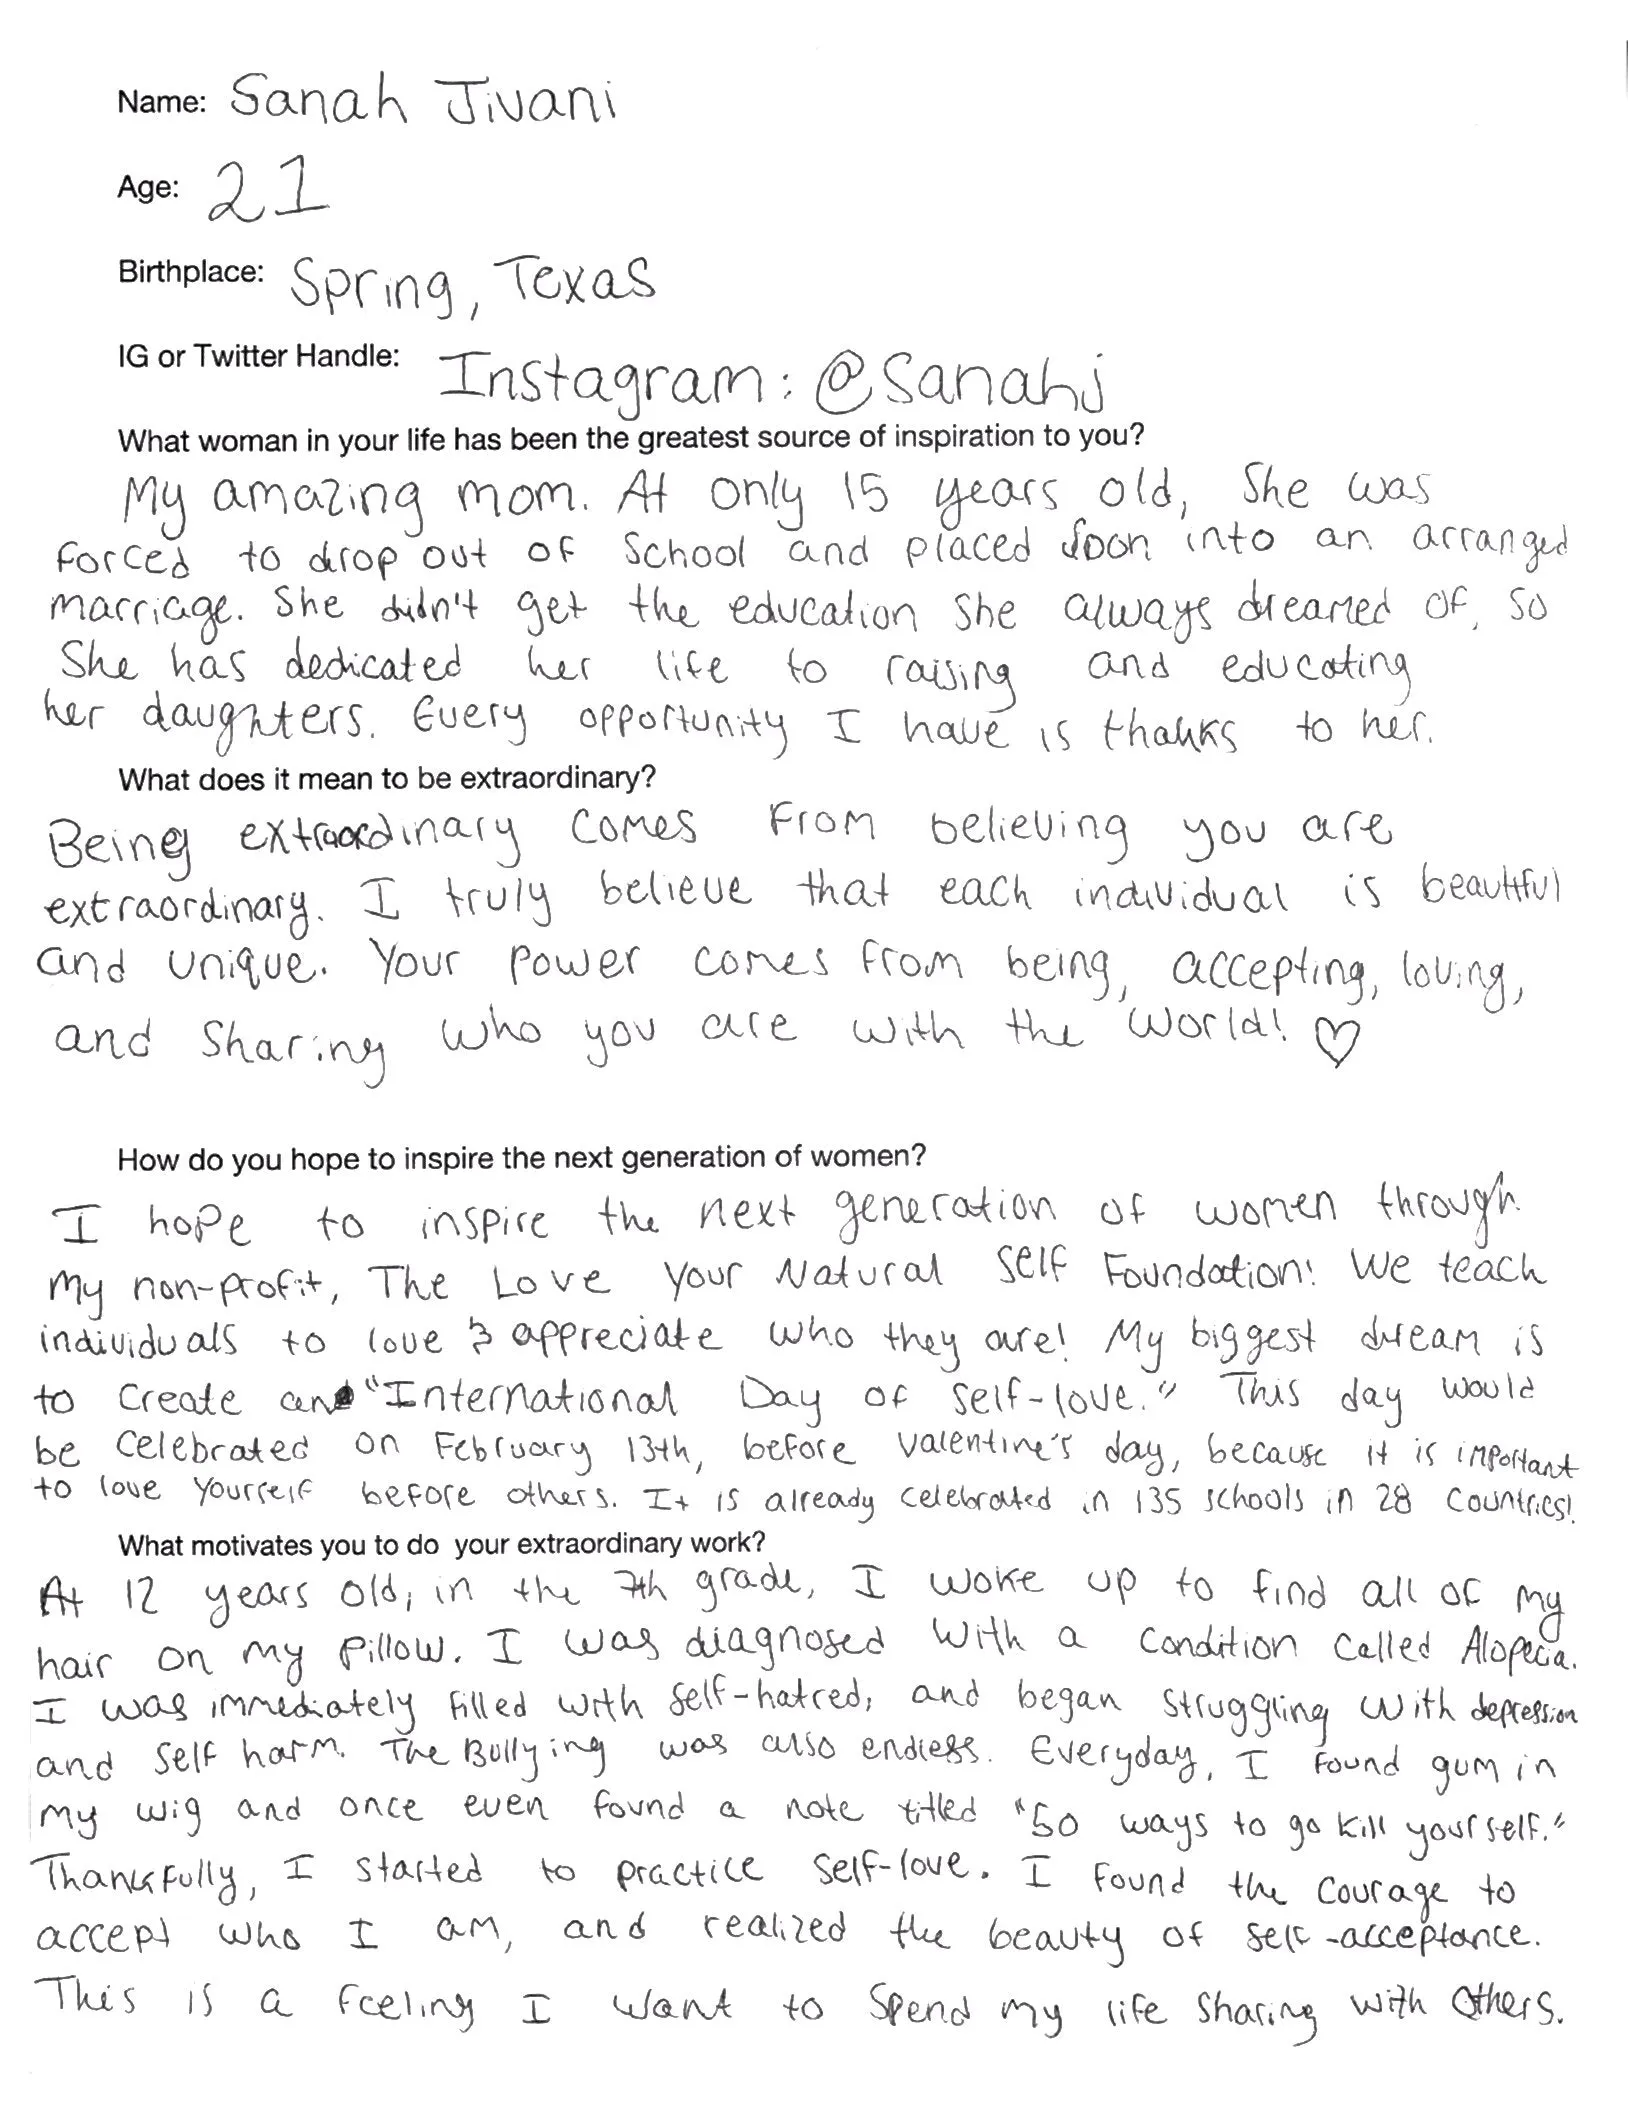 Name: Sanah Jivani
Age: 21
Birthplace: Spring, Texas
IG or Twitter Handle: Instagram: @sanahj
What woman in your life has been the greatest source of inspiration to you?
My amazing mom. At only 15 years old, she was
forced to drop out of school and placed soon into an arranged
marriage. She didn't get the education she always dreamed of, so
she has dedicated her life to raising and educating
her daughters. Every opportunity I have is thanks to her.
What does it mean to be extraordinary?
Being extraordinary comes from believing you are
extraordinary. I truly believe that each individual is beautiful
and unique. Your power comes from being, accepting, loving,
and sharing who you are with the world! ♡
How do you hope to inspire the next generation of women?
I hope to inspire the next generation of women through
my non-profit, The Love Your Natural Self Foundation! We teach
individuals to love & appreciate who they are! My biggest dream is
to create an "International Day of Self-love." This day would
be celebrated on February 13th, before Valentine's day, because it is important
to love yourself before others. It is already celebrated in 135 schools in 28 countries!
What motivates you to do your extraordinary work?
At 12 years old, in the 7th grade, I woke up to find all of my
hair on my pillow. I was diagnosed with a condition called Alopecia.
I was immediately filled with self-hatred, and began struggling with depression
and self harm. The Bullying was also endless. Everyday, I found gum in
my wig and once even found a note titled "50 ways to go kill yourself."
Thankfully, I started to practice self-love. I found the courage to
accept who I am, and realized the beauty of self-acceptance.
This is a feeling I want to spend my life sharing with others.